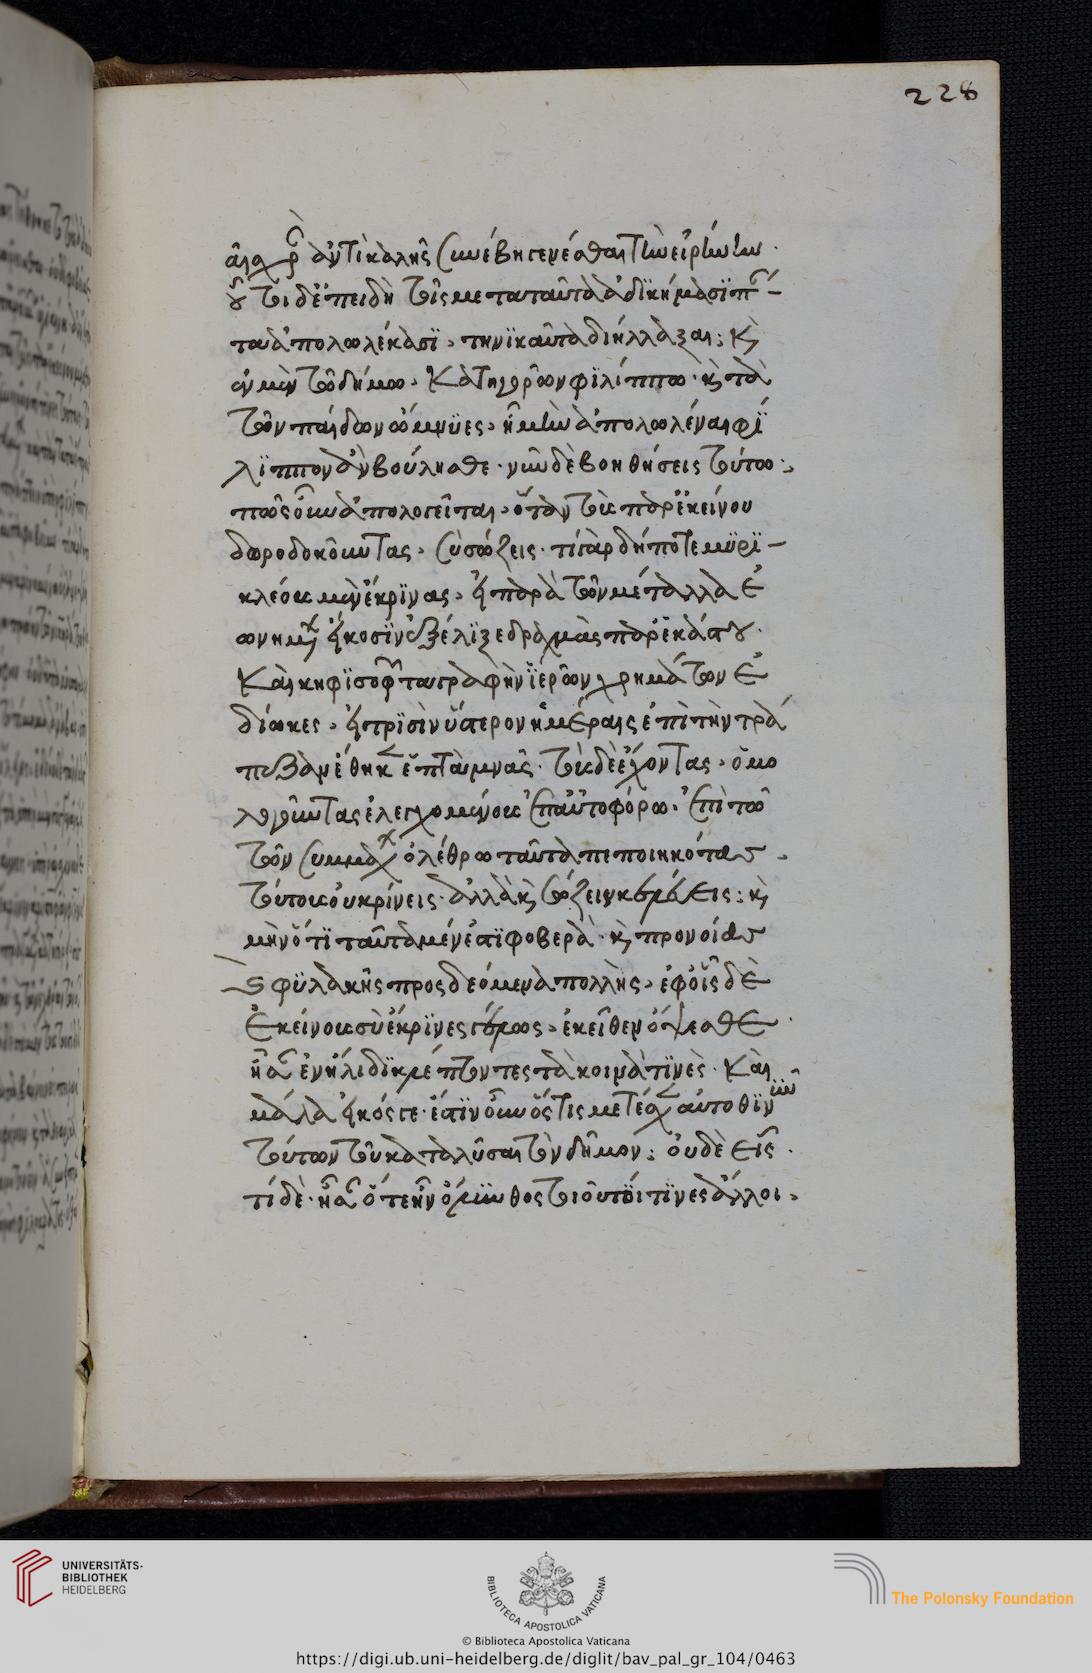 228
αἰσχρὰν ἀντὶ καλῆς συνέβη γενέσθαι τὴν εἰρήνην.
οὗτοι δ' ἐπειδὴ τοῖς μετὰ ταῦτα ἀδικήμασι πάν-
τα ἀπολωλέκασι, τηνικαῦτα διηλλάξαι; καὶ
ἐν μὲν τῷ δήμῳ, κατηρῶ Φιλίππῳ, καὶ κατὰ
τῶν παίδων ὤμνυες, ἦ μὴν ἀπολωλέναι Φί-
λιππον ἂν βούλεσθαι· νῦν δὲ βοηθήσεις τούτῳ;
πῶς οὖν ἀπολεῖται, ὅταν τοὺς παρ' ἐκείνου
δωροδοκοῦντας, σὺ σώζεις· τί γάρ δήποτε Μοιρι-
κλέους μὲν ἔκρινας, εἰ παρὰ τῶν μέταλλα ἐ
ωνημένων εἴκοσιν ἐξέλεξε δραχμὰς παρ' ἑκάστου·
καὶ Κηφισοφῶντα γραφὴν ἱερῶν χρημάτων ἐ
δίωκες, εἰ τρισὶν ὕστερον ἡμέραις ἐπὶ τὴν τρά
πεζαν ἔθηκεν ἑπτὰ μνᾶς· τοὺς δὲ ἔχοντας, ὁμο
λογοῦντας ἐλεγχομένους ἐπ' αὐτοφόρῳ, ἐπὶ τῷ
τῶν συμμάχων ὀλέθρῳ ταῦτα πεποιηκότας,
τούτους οὐ κρίνεις· ἀλλὰ καὶ σώζειν κελεύεις; καὶ
μὴν ὅτι ταῦτα μέν ἐστι φοβερὰ· καὶ προνοίας
καὶ φυλακῆς προσδεόμενα πολλῆς, ἐφ' οἷς δὲ
ἐκείνους σὺ ἔκρινες γέλως, ἐκεῖθεν ὄψεσθε·
ἦσαν ἐν Ἤλιδι κλέπτοντες τὰ κοινά τινές· καὶ
μάλα εἰκός γε· ἔστιν οὖν ὅστις μετέσχεν αὐτόθι νῦν
τούτων τοῦ καταλῦσαι τὸν δῆμον; οὐδὲ εἷς.
τί δὲ· ἦσαν ὅτε ἦν Ὄλυνθος τοιοῦτοί τινες ἄλλοι,
UNIVERSITÄTS-
BIBLIOTHEK
HEIDELBERG
BIBLIOTECA APOSTOLICA VATICANA
The Polonsky Foundation
© Biblioteca Apostolica Vaticana
https://digi.ub.uni-heidelberg.de/diglit/bav_pal_gr_104/0463